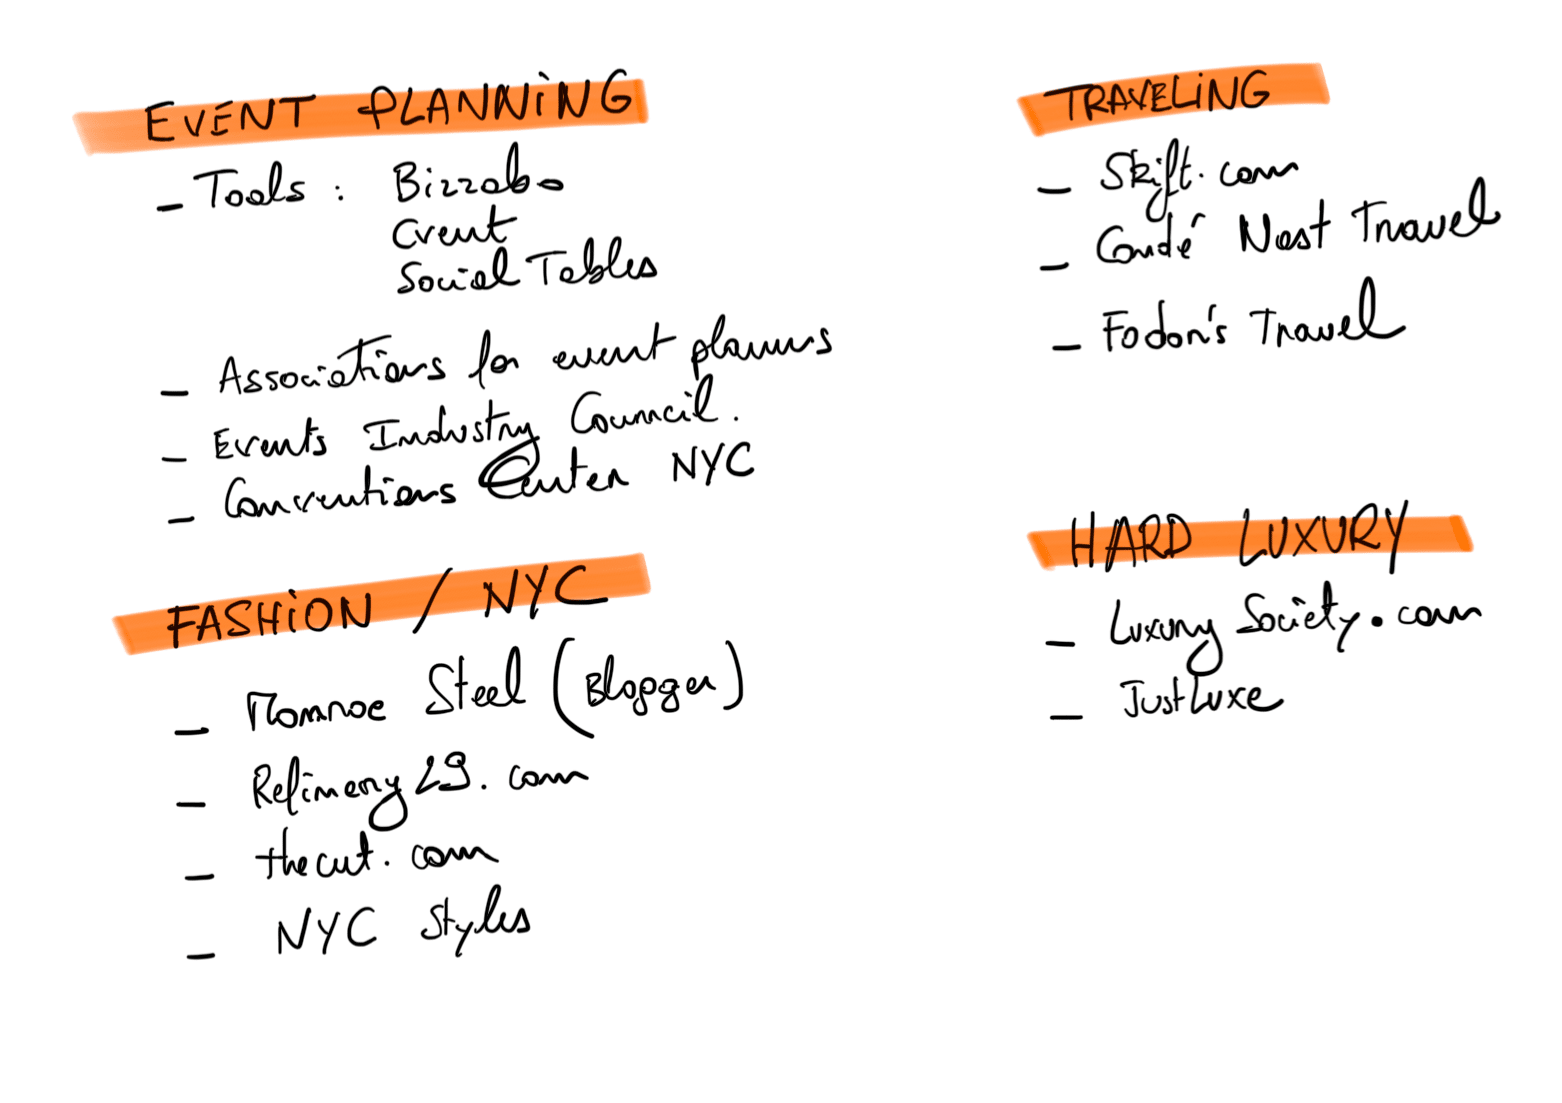 EVENT PLANNING
- Tools : Bizzabo
Cvent
Social Tables
- Associations for event planners
- Events Industry Council.
- Conventions Center NYC
FASHION / NYC
- Monroe Steel (Blogger)
- Refinery29.com
- thecut.com
- NYC Styles
TRAVELING
- Skift.com
- Condé Nast Travel
- Fodor's Travel
HARD LUXURY
- Luxury Society.com
- JustLuxe